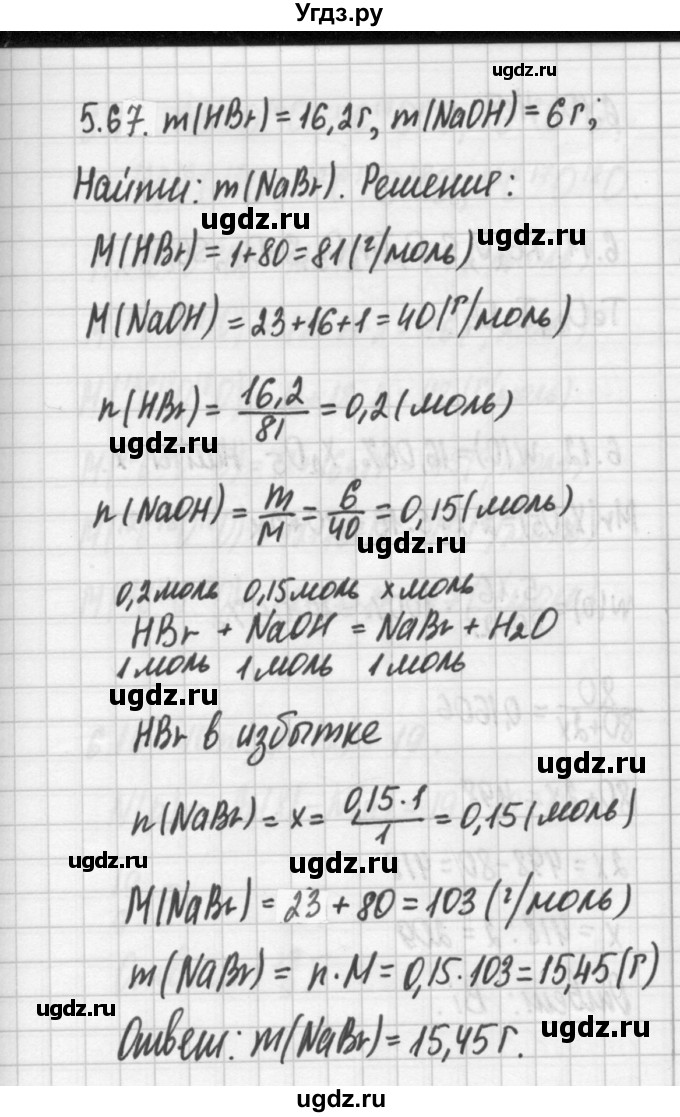 Угдз.ру
ugdz.ru
5.67. m(HBr) = 16,2г, m(NaOH) = 6г;
Найти: m(NaBr). Решения:
ugdz.ru
ugdz.ru
M(HBr) = 1+80 = 81(г/моль)
M(NaOH) = 23+16+1 = 40(г/моль)
n(HBr) = 16,2/81 = 0,2(моль)
ugdz.ru
n(NaOH) = m/M = 6/40 = 0,15(моль)
ugdz.ru
0,2моль 0,15моль x моль
HBr + NaOH = NaBr + H2O
1 моль 1 моль 1 моль
ugdz.ru
HBr в избытке
ugdz.ru
n(NaBr) = x = 0,15·1/1 = 0,15(моль)
ugdz.ru
ugdz.ru
M(NaBr) = 23 + 80 = 103 (г/моль)
m(NaBr) = n·M = 0,15·103 = 15,45(г)
ugdz.ru
ugdz.ru
Ответ: m(NaBr) = 15,45г.
ugdz.ru